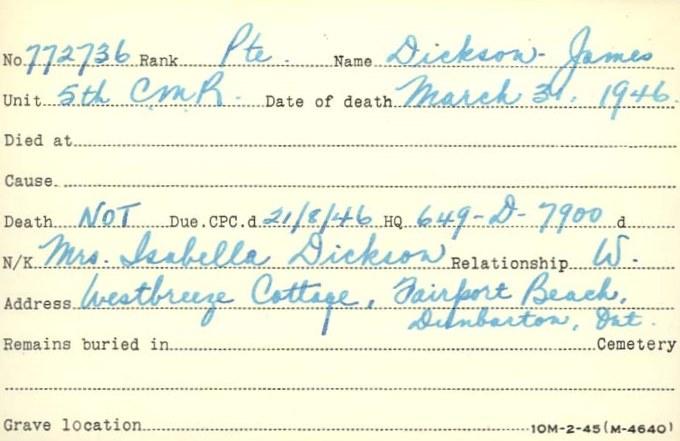 No. 772736 Rank Pte. Name Dickson - James
Unit 5th CMR. Date of death March 31. 1946.
Died at
Cause
Death NOT Due.CPC.d 21/8/46 HQ 649-D-7900 d
N/K Mrs. Isabella Dickson Relationship W.
Address Westbreeze Cottage, Fairport Beach,
Dunbarton, Ont.
Remains buried in Cemetery
Grave location 10M-2-45(M-4640)